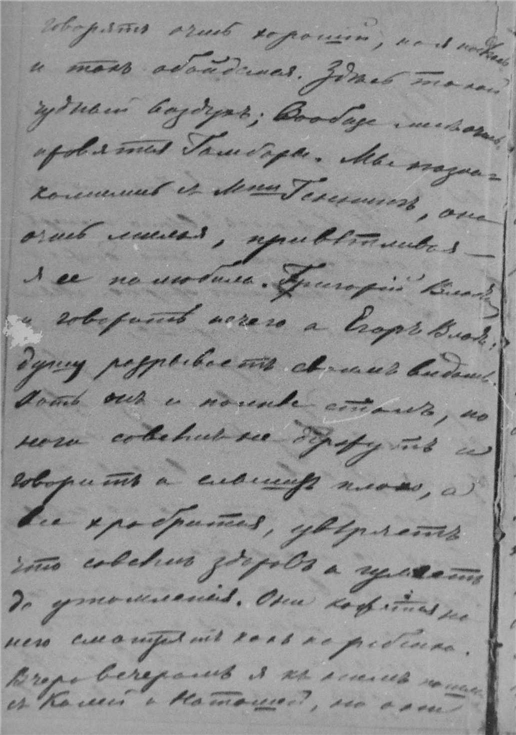 говорятъ очень хорошій, но я
и такъ обойдемся. Здѣсь такой
чудный воздухъ; вообще мнѣ очень
нравятся Гамборы. Мы позна-
комились съ M-me Генингъ, она
очень милая, привѣтливая —
я ее полюбила. Григорій Влад.
и говорить нечего а Егоръ Влад.
душу разрываетъ своимъ видомъ.
Хоть онъ и полнѣе сталъ, но
ноги совсѣмъ не берутъ и
говоритъ и слышитъ плохо, а
все храбрится, увѣряетъ
что совсѣмъ здоровъ и гуляетъ
до утомленія. Они на
него смотрятъ какъ на ребенка.
Вчера вечеромъ я къ нимъ
съ Катей и Наташей, но они